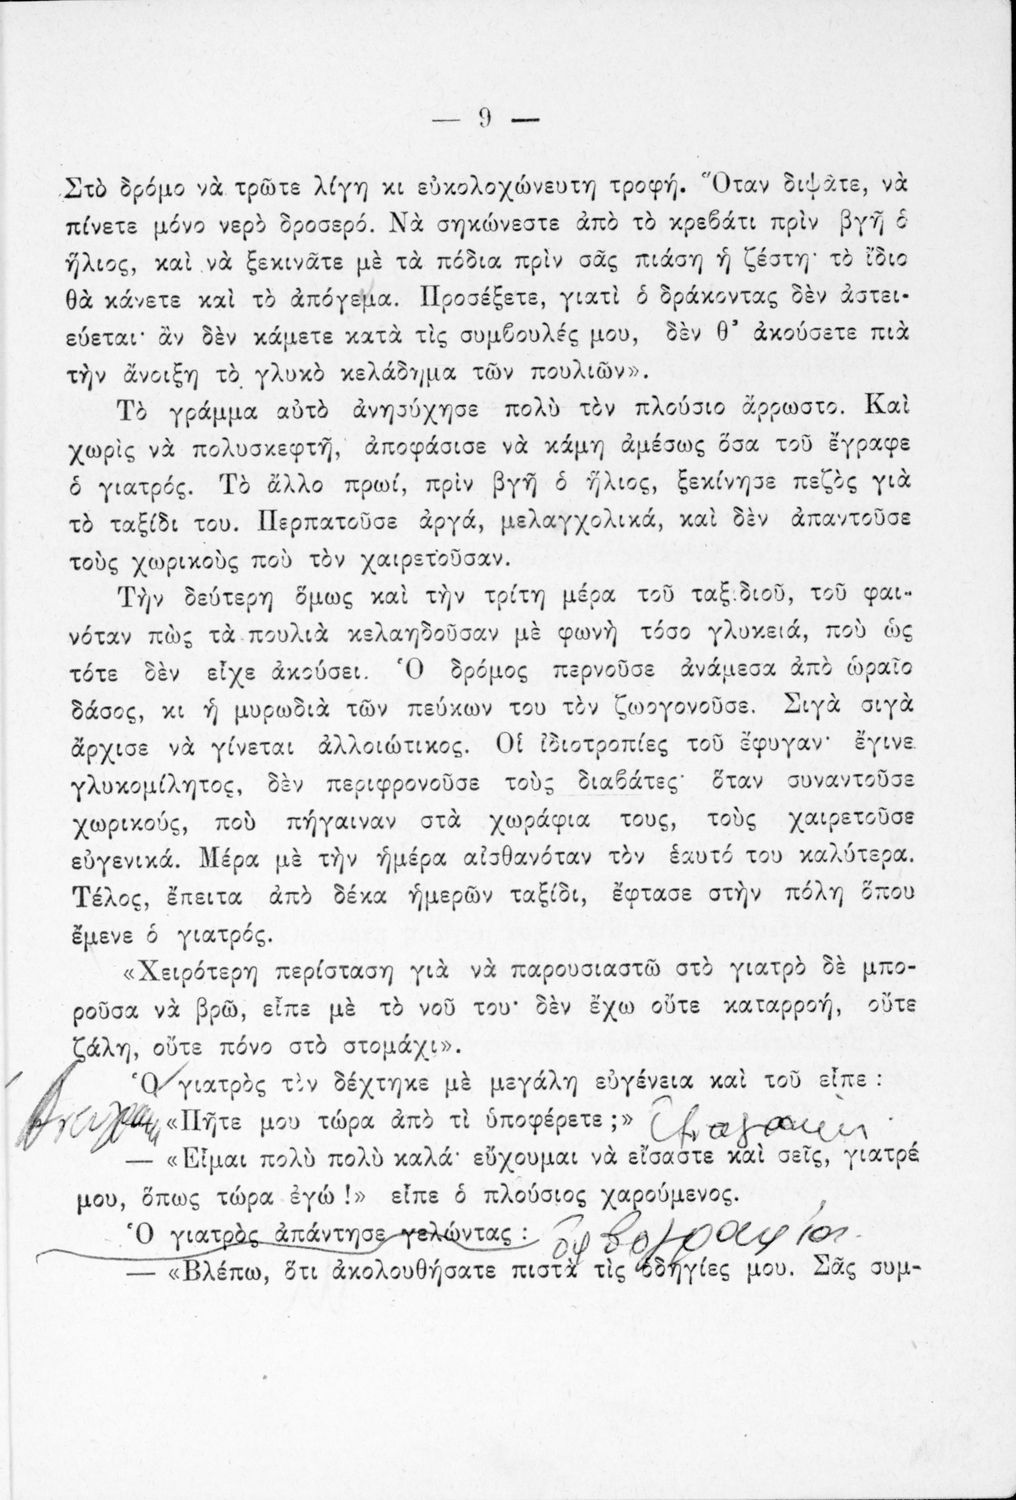 — 9 —
Στὸ δρόμο νὰ τρῶτε λίγη κι εὐκολοχώνευτη τροφή. Ὅταν διψᾶτε, νὰ
πίνετε μόνο νερὸ δροσερό. Νὰ σηκώνεστε ἀπὸ τὸ κρεϐάτι πρὶν βγῆ ὁ
ἥλιος, καὶ νὰ ξεκινᾶτε μὲ τὰ πόδια πρὶν σᾶς πιάση ἡ ζέστη· τὸ ἴδιο
θὰ κάνετε καὶ τὸ ἀπόγεμα. Προσέξετε, γιατὶ ὁ δράκοντας δὲν ἀστει-
εύεται· ἂν δὲν κάμετε κατὰ τὶς συμϐουλές μου, δὲν θ’ ἀκούσετε πιὰ
τὴν ἄνοιξη τὸ γλυκὸ κελάδημα τῶν πουλιῶν».
Τὸ γράμμα αὐτὸ ἀνησύχησε πολὺ τὸν πλούσιο ἄρρωστο. Καὶ
χωρὶς νὰ πολυσκεφτῆ, ἀποφάσισε νὰ κάμη ἀμέσως ὅσα τοῦ ἔγραφε
ὁ γιατρός. Τὸ ἄλλο πρωί, πρὶν βγῆ ὁ ἥλιος, ξεκίνησε πεζὸς γιὰ
τὸ ταξίδι του. Περπατοῦσε ἀργά, μελαγχολικά, καὶ δὲν ἀπαντοῦσε
τοὺς χωρικοὺς ποὺ τὸν χαιρετοῦσαν.
Τὴν δεύτερη ὅμως καὶ τὴν τρίτη μέρα τοῦ ταξιδιοῦ, τοῦ φαι-
νόταν πὼς τὰ πουλιὰ κελαηδοῦσαν μὲ φωνὴ τόσο γλυκειά, ποὺ ὡς
τότε δὲν εἶχε ἀκούσει. Ὁ δρόμος περνοῦσε ἀνάμεσα ἀπὸ ὡραῖο
δάσος, κι ἡ μυρωδιὰ τῶν πεύκων του τὸν ζωογονοῦσε. Σιγὰ σιγὰ
ἄρχισε νὰ γίνεται ἀλλοιώτικος. Οἱ ἰδιοτροπίες τοῦ ἔφυγαν· ἔγινε
γλυκομίλητος, δὲν περιφρονοῦσε τοὺς διαϐάτες· ὅταν συναντοῦσε
χωρικούς, ποὺ πήγαιναν στὰ χωράφια τους, τοὺς χαιρετοῦσε
εὐγενικά. Μέρα μὲ τὴν ἡμέρα αἰσθανόταν τὸν ἑαυτό του καλύτερα.
Τέλος, ἔπειτα ἀπὸ δέκα ἡμερῶν ταξίδι, ἔφτασε στὴν πόλη ὅπου
ἔμενε ὁ γιατρός.
«Χειρότερη περίσταση γιὰ νὰ παρουσιαστῶ στὸ γιατρὸ δὲ μπο-
ροῦσα νὰ βρῶ, εἶπε μὲ τὸ νοῦ του· δὲν ἔχω οὔτε καταρροή, οὔτε
ζάλη, οὔτε πόνο στὸ στομάχι».
Ὁ γιατρὸς τὸν δέχτηκε μὲ μεγάλη εὐγένεια καὶ τοῦ εἶπε :
«Πῆτε μου τώρα ἀπὸ τὶ ὑποφέρετε ;»
— «Εἶμαι πολὺ πολὺ καλά· εὔχουμαι νὰ εἴσαστε καὶ σεῖς, γιατρέ
μου, ὅπως τώρα ἐγώ !» εἶπε ὁ πλούσιος χαρούμενος.
Ὁ γιατρὸς ἀπάντησε γελώντας : ὀρθογραφία
— «Βλέπω, ὅτι ἀκολουθήσατε πιστὰ τὶς ὁδηγίες μου. Σᾶς συμ-